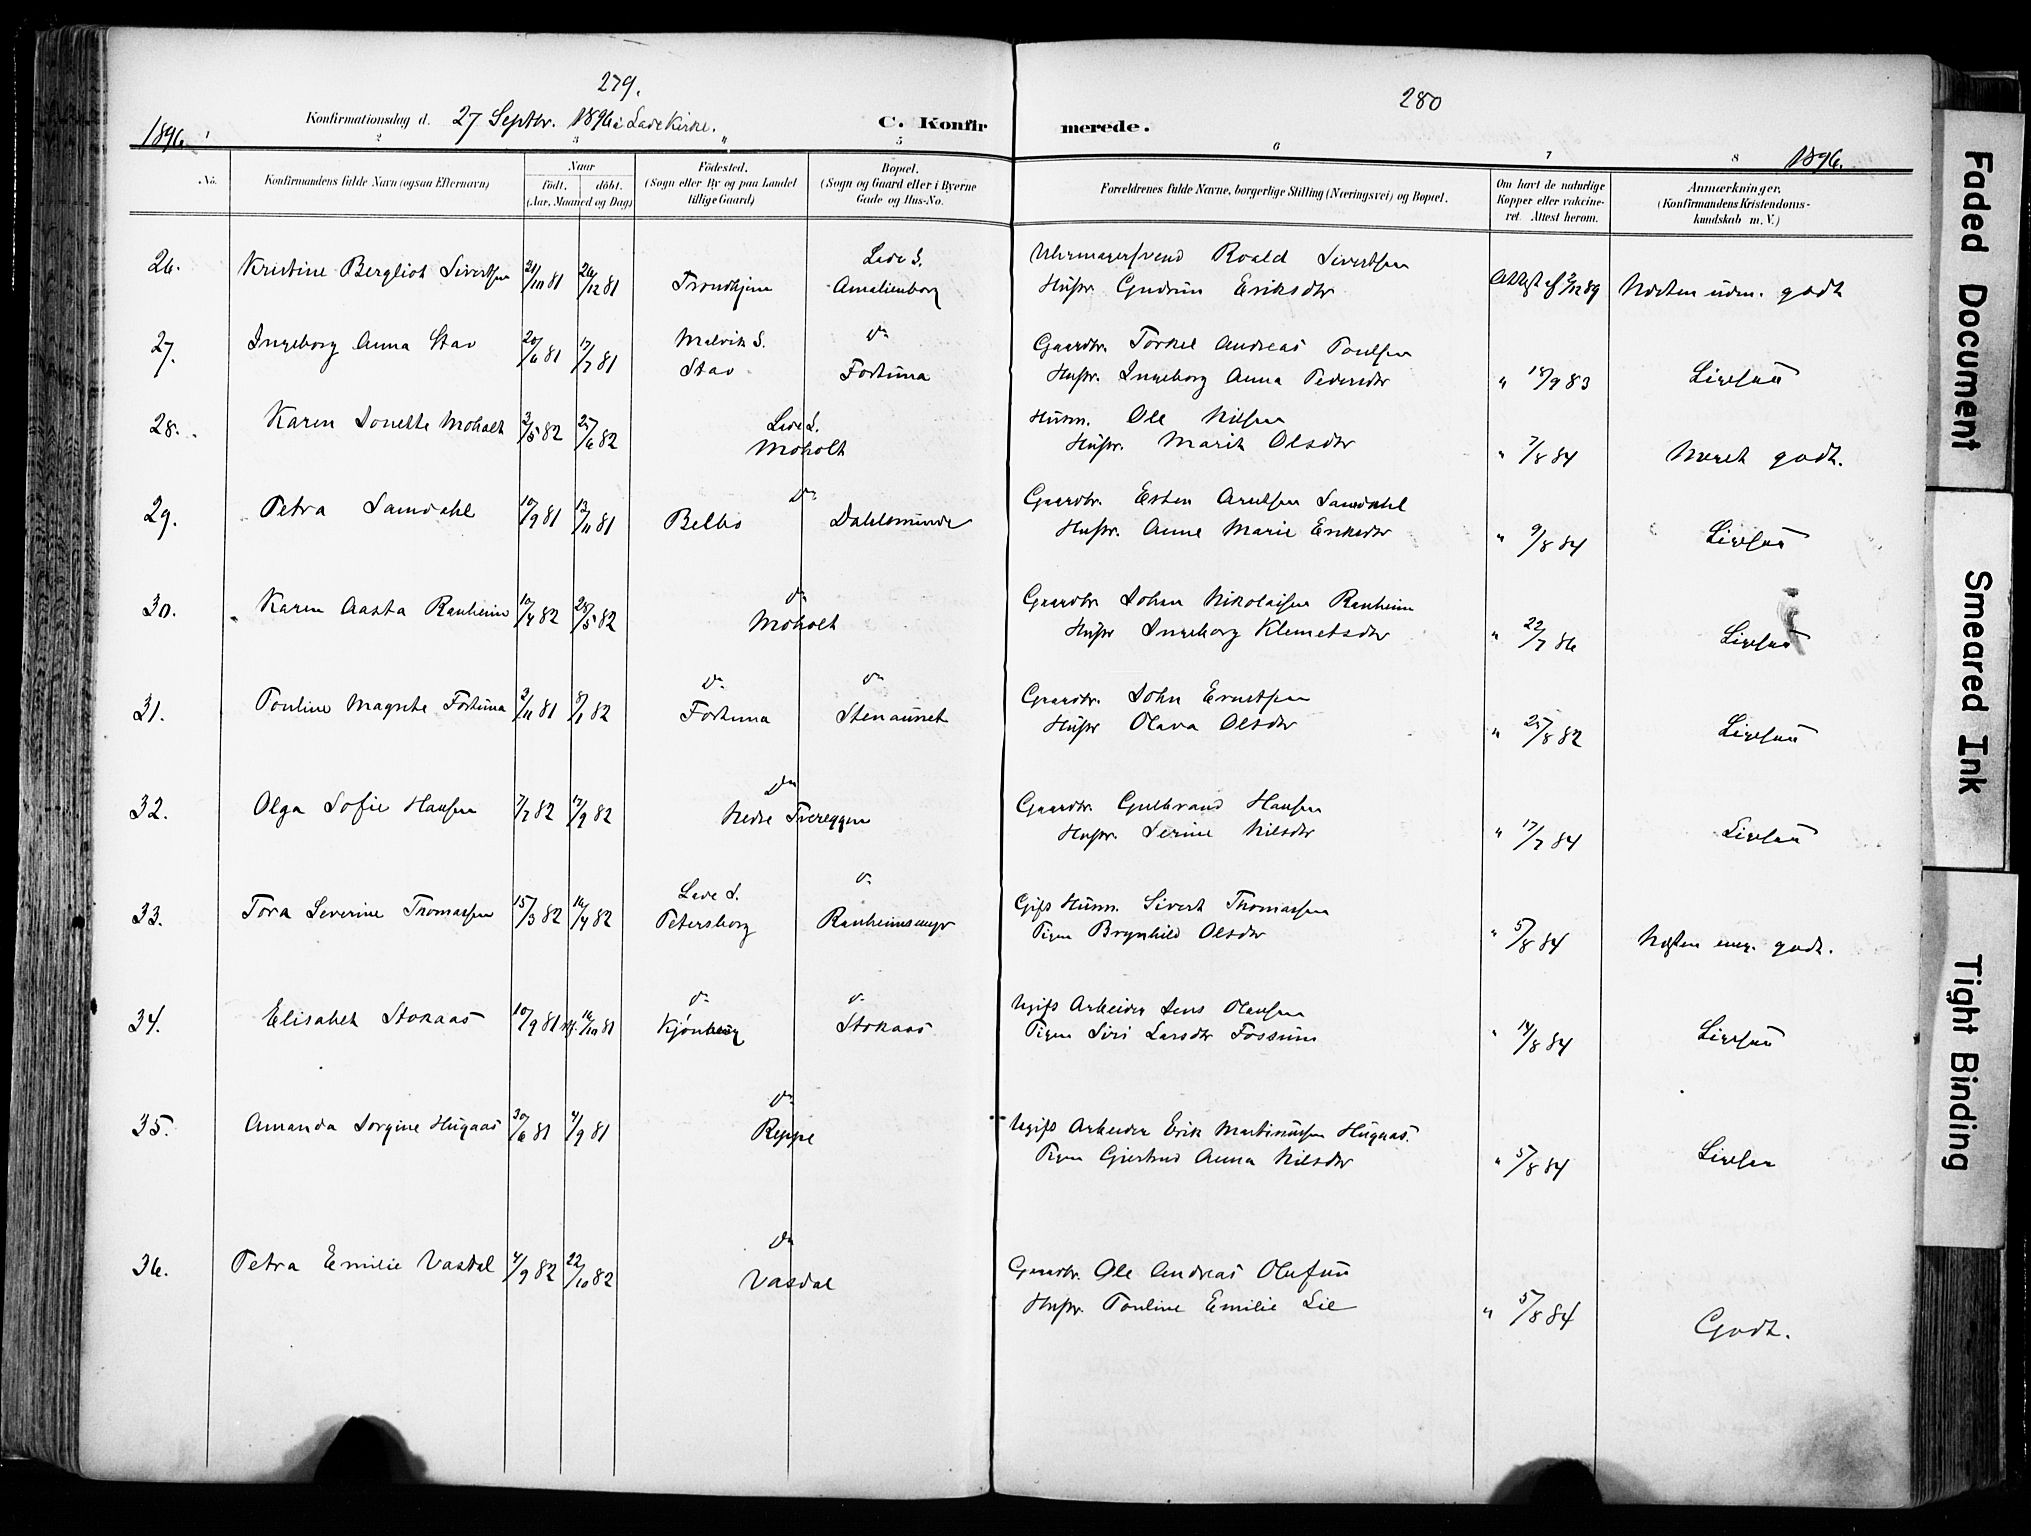 279.
280
1896.
Konfirmationsdag d. 27 Septbr. 1896 i Lade Kirke.
C. Konfirmerede.
1896.
1 2 3 4 5 6 7 8
No.
Konfirmandens fulde Navn (ogsaa Efternavn)
Naar
födt. döbt.
(Aar, Maaned og Dag)
Födested.
(Sogn eller By og paa Landet
tillige Gaard)
Bopæl.
(Sogn og Gaard eller i Byerne
Gade og Hus-No.
Forældrenes fulde Navne, borgerlige Stilling (Næringsvei) og Bopæl.
Om havt de naturlige
Kopper eller vakcine-
ret. Attest herom.
Anmærkninger.
(Konfirmandens Kristendoms-
kundskab m. V.)
26. Kristine Bergliot Sivertsen 21/10 81 26/12 81 Trondhjem Lade S. Amalienborg
Uhrmagersvend Roald Sivertsen
Hustr. Gudrun Eriksdtr
Attest af 2/12 89 Næsten udm. godt
27. Ingeborg Anna Stav 20/6 81 17/7 81 Malvik S. Stav do Fortuna
Gaardbr. Torkel Andreas Poulsen
Hustr. Ingeborg Anna Pedersdtr
" 18/9 83 Ligesaa
28. Karen Jonette Moholt 3/5 82 25/6 82 Lade S. Moholt
Husm. Ole Nilsen
Hustr. Marit Olsdtr
" 7/8 84 Meget godt.
29. Petra Samdahl 10/9 81 13/11 81 Belbo do Dahlsminde
Gaardbr. Esten Arntsen Samdahl
Hustr. Anne Marie Eriksdtr
" 9/8 84 Ligesaa
30. Karen Aasta Ranheim 10/4 82 28/5 82 do Moholt
Gaardbr Johan Nikolaisen Ranheim
Hustr Ingeborg Klemetsdtr
" 22/7 86 Ligesaa
31. Pauline Magrete Fortuna 3/11 81 8/1 82 do Fortuna do Stenaunet
Gaardbr. John Erntsen
Hustr Olava Olsdtr
" 25/8 82 Ligesaa
32. Olga Sofie Hansen 7/7 82 17/9 82 do Nedre Tvereggen
Gaardbr. Gulbrand Hansen
Hustr. Serine Nilsdtr
" 17/7 84 Ligesaa
33. Tora Severine Thomassen 15/3 82 16/4 82 Lade S. Petersborg do Ranheimsmyr
Gift Husm. Sivert Thomassen
Pigen Brynhild Olsdtr
" 5/8 84 Næsten meg. godt.
34. Elisabet Stokaas 10/9 81 16/10 81 do Kjønberg do Stokaas
Ugift Arbeider Jens Olausen
Pigen Siri Larsdtr Fossum
" 14/8 84 Ligesaa
35. Amanda Jorgine Hugaas 30/6 81 4/9 81 do Reppe
Ugift Arbeider Erik Martinussen Hugaas.
Pigen Gjertrud Anna Nilsdtr
" 5/8 84 Ligesaa
36. Petra Emilie Vasdal 4/9 82 22/10 82 do Vasdal
Gaardbr. Ole Andreas Olufsen
Hustr. Pauline Emilie Lie
" 5/8 84 Godt.
Faded Document
Smeared Ink
Tight Binding